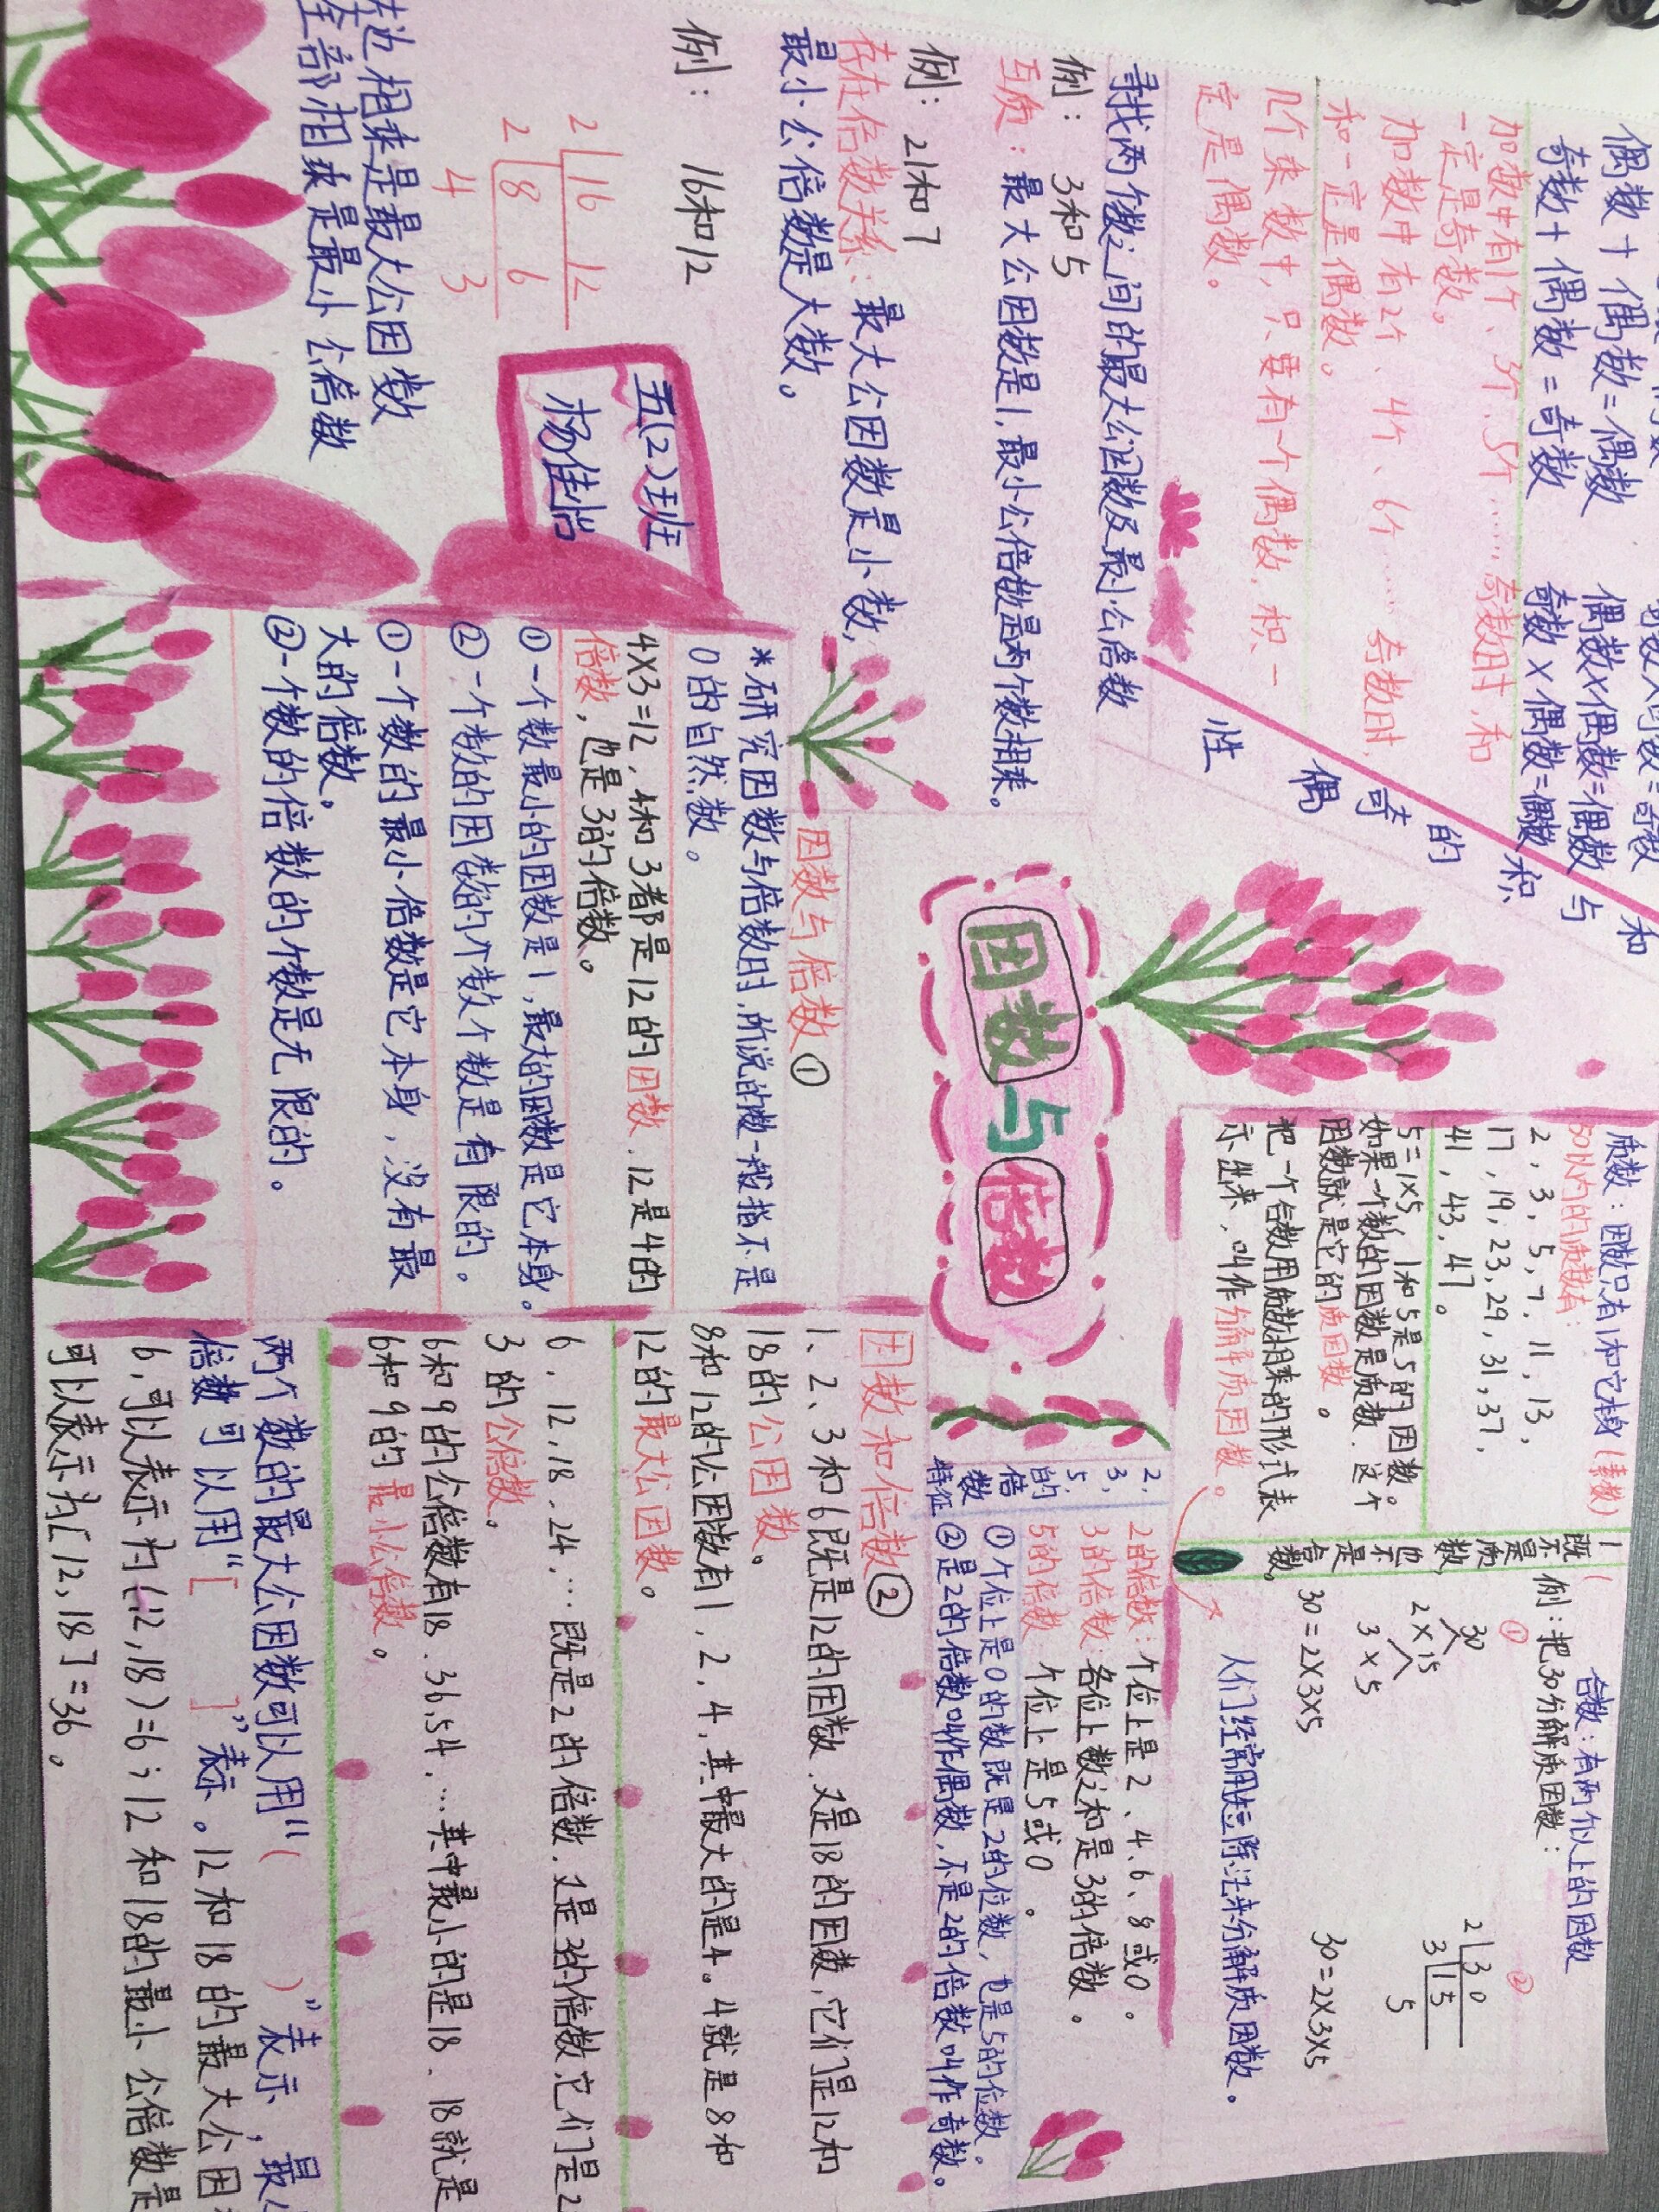 偶数+偶数=偶数
奇数+偶数=奇数
偶数×偶数=偶数
奇数×偶数=偶数
加数中有1个、3个、5个……奇数时,和
一定是奇数。
加数中有2个、4个、6个……奇数时,
和一定是偶数。
几个乘数中,只要有一个偶数,积一
定是偶数。
和
与
积
的
奇
偶
性
寻找两个数之间的最大公因数及最小公倍数
例: 3和5
互质:最大公因数是1,最小公倍数是两个数相乘。
例: 21和7
存在倍数关系:最大公因数是小数,
最小公倍数是大数。
例: 16和12
2 16 12
2 8 6
4 3
左边相乘是最大公因数
全部相乘是最小公倍数
五(2)班
杨佳怡
因数与倍数
因数与倍数①
*研究因数与倍数时,所说的数一般指不是
0的自然数。
4×3=12,4和3都是12的因数,12是4的
倍数,也是3的倍数。
①一个数最小的因数是1,最大的因数是它本身。
②一个数的因数的个数个数是有限的。
①一个数的最小倍数是它本身,没有最
大的倍数。
②一个数的倍数的个数是无限的。
质数:因数只有1和它本身(素数)
50以内的质数有:
2,3,5,7,11,13,
17,19,23,29,31,37,
41,43,47。
5=1×5,1和5是5的因数。
如果一个数的因数是质数,这个
因数就是它的质因数。
把一个合数用质数相乘的形式表
示出来,叫作分解质因数。
1既
不是
质
数
也不是
合数。
合数:有两个以上的因数
例:把30分解质因数:
①
30
2×15
3×5
30=2×3×5
②
2 30
3 15
5
30=2×3×5
人们经常用短除法来分解质因数。
2、
3、
5
的
倍
数
特征
2的倍数:个位上是2、4、6、8或0。
3的倍数:各位上数之和是3的倍数。
5的倍数 个位上是5或0。
①个位上是0的数既是2的位数,也是5的位数。
②是2的倍数叫作偶数,不是2的倍数叫作奇数。
因数和倍数②
1、2、3和6既是12的因数,又是18的因数,它们是12和
18的公因数。
8和12的公因数有1,2,4,其中最大的是4。4就是8和
12的最大公因数。
6,12,18,24,…既是2的倍数,又是3的倍数,它们是2
3的公倍数。
6和9的公倍数有18,36,54,…其中最小的是18,18就是
6和9的最小公倍数。
两个数的最大公因数可以用“( )”表示,最小
倍数可以用“[ ]”表示。12和18的最大公因
6,可以表示为(12,18)=6;12和18的最小公倍数是
可以表示为[12,18]=36。